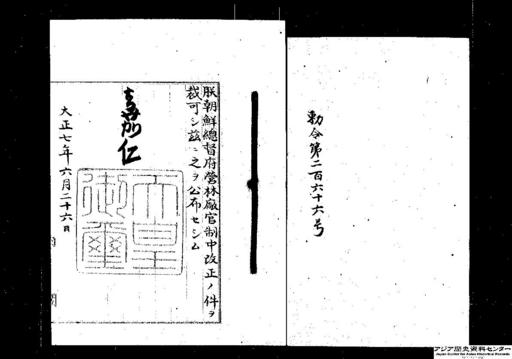 勅令第二百六十六号
朕朝鮮總督府營林廠官制中改正ノ件ヲ
裁可シ茲ニ之ヲ公布セシム
嘉仁
天皇御璽
大正七年六月二十六日
内
閣
アジア歴史資料センター
Japan Center for Asian Historical Records